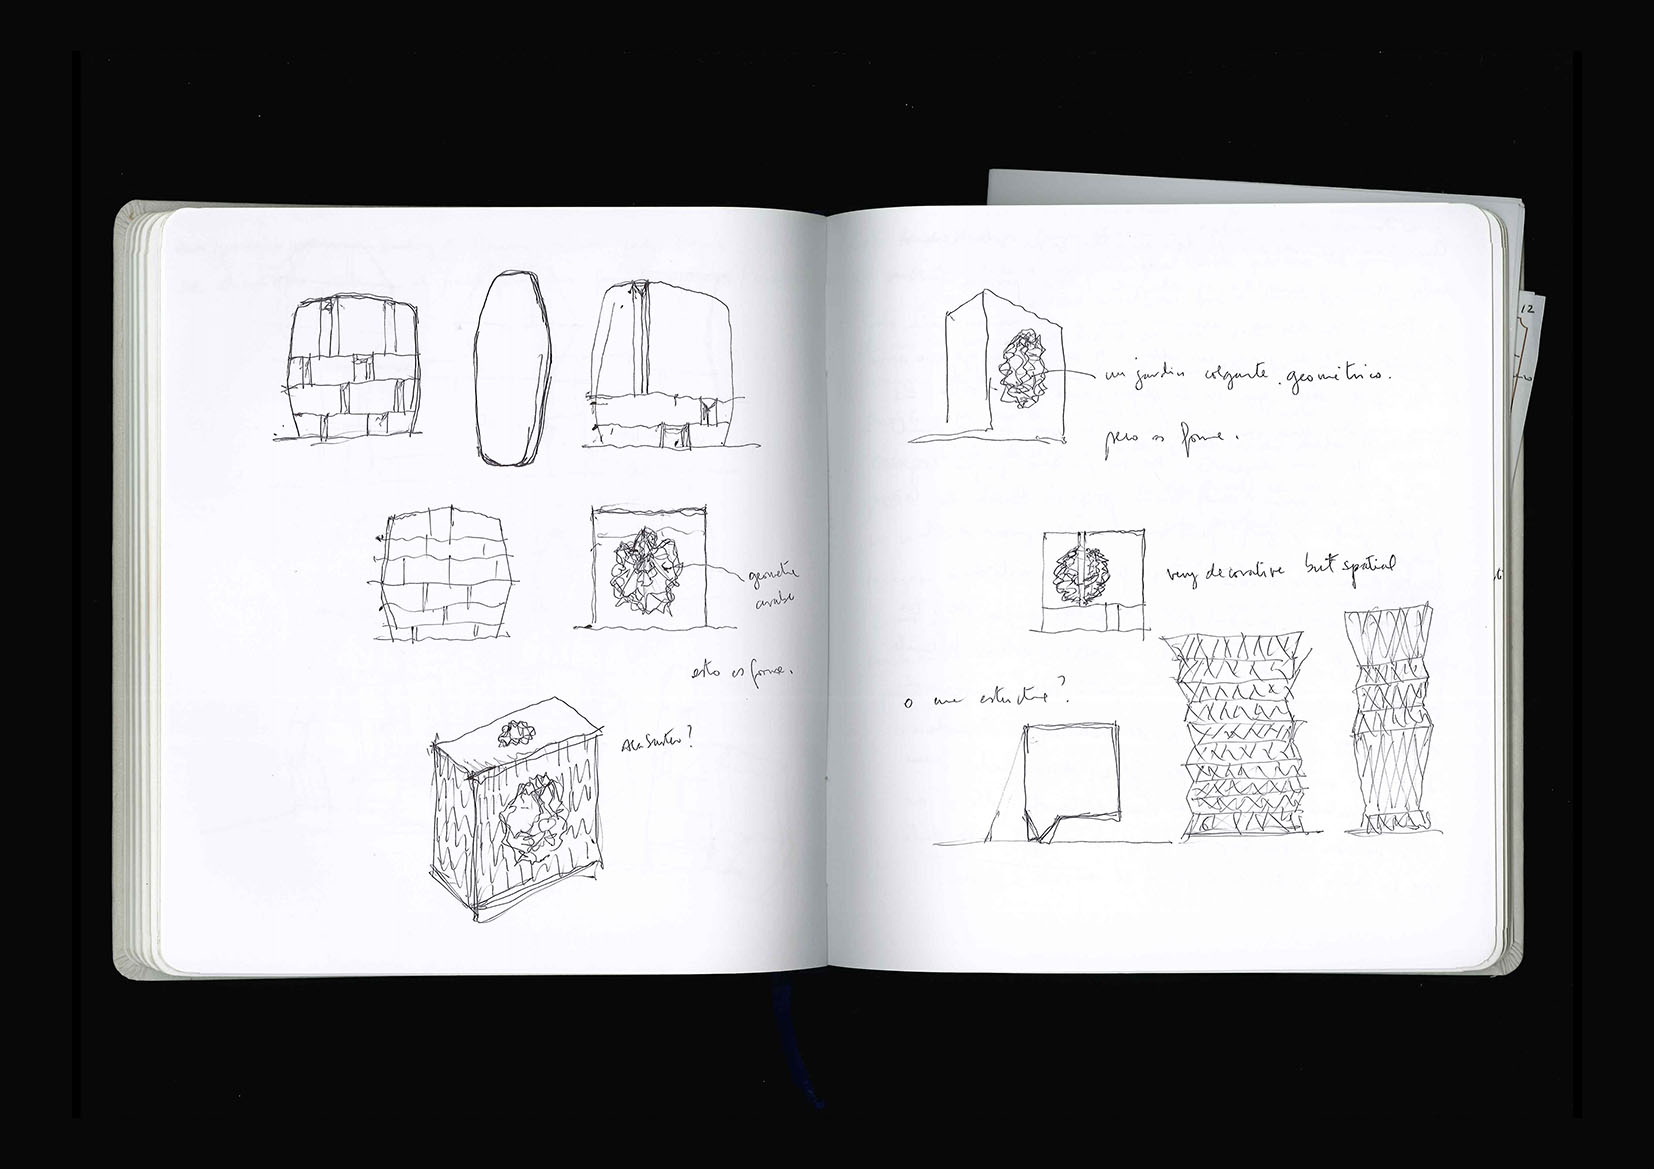 geometria
arabe
esto es forma.
un jardin colgante. geométrico.
pero es forma.
very decorative but spatial
o una estructura?
12